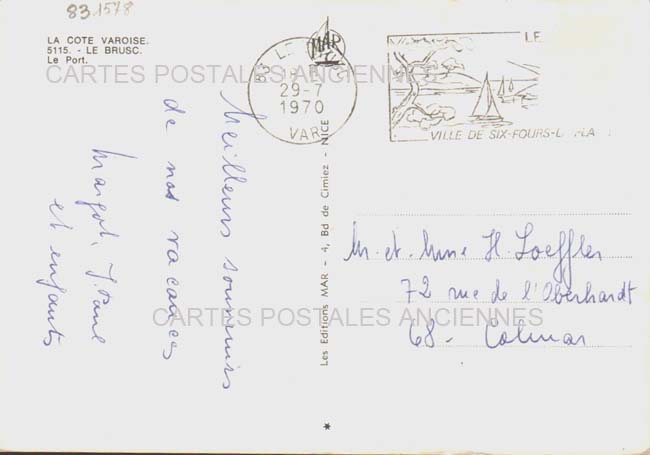 83 1578
LA COTE VAROISE.
5115. - LE BRUSC.
Le Port.
CARTES POSTALES ANCIENNES
MAR
83 LE
29-7
1970
VAR
LE
VILLE DE SIX-FOURS-L PLA
Meilleurs souvenirs
de nos vacances
Margot, J. Paul
et enfants
Les Editions MAR - 4, Bd de Cimiez - NICE
M. et Mme H. Loeffler
72 rue de l'Oberhardt
68 - Colmar
CARTES POSTALES ANCIENNES
*